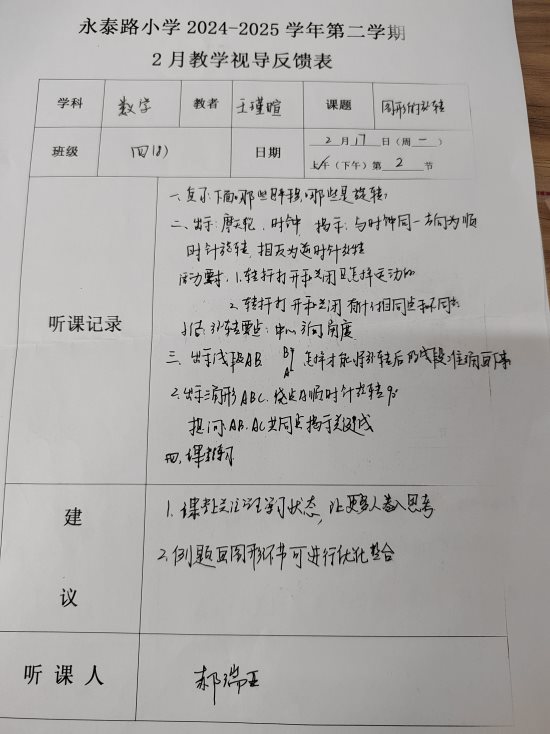 永泰路小学 2024-2025 学年第二学期
2 月教学视导反馈表
学科 数学 教者 王瑾暄 课题 图形的旋转
班级 四(8) 日期 2 月 17 日（周 一 ）
上午（下午）第 2 节
听课记录
一、复习：下面哪些是平移，哪些是旋转？
二、出示：摩天轮、时钟 揭示：与时钟同一方向为顺
时针旋转，相反为逆时针旋转
活动要求：1. 转杆打开和关闭是怎样运动的
2. 转杆打开和关闭有什么相同点和不同点
小结：旋转要点：中心 方向 角度
三、出示线段AB B A 怎样才能将旋转后的线段准确画下来
2.出示三角形ABC，绕点A顺时针旋转90°
提问：AB、AC共同点 揭示关键线
四、课堂练习
建议
1. 课堂关注学生学习状态，让更多人卷入思考
2. 例题画图形环节可进行优化整合
听课人 郝瑞亚